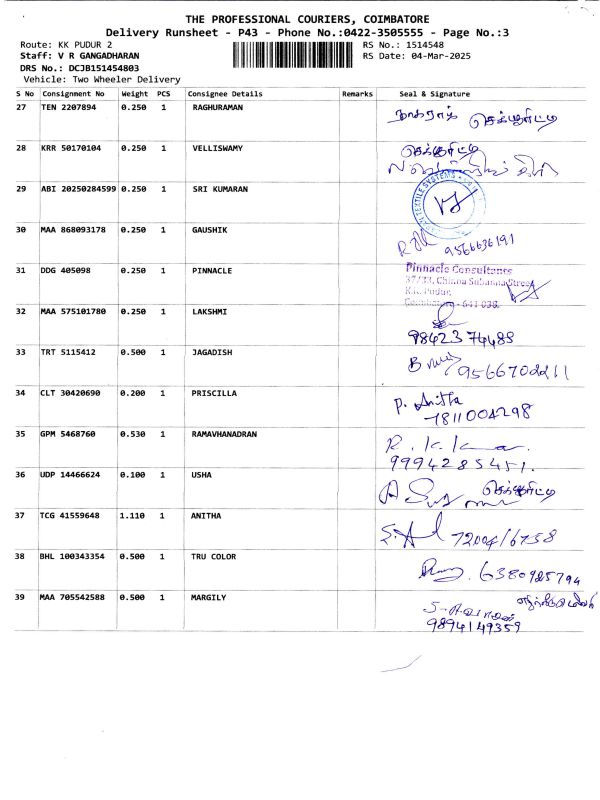 THE PROFESSIONAL COURIERS, COIMBATORE
Delivery Runsheet - P43 - Phone No.:0422-3505555 - Page No.:3
Route: KK PUDUR 2
RS No.: 1514548
Staff: V R GANGADHARAN
RS Date: 04-Mar-2025
DRS No.: DCJB151454803
Vehicle: Two Wheeler Delivery
S No Consignment No Weight PCS Consignee Details Remarks Seal & Signature
27 TEN 2207894 0.250 1 RAGHURAMAN
28 KRR 50170104 0.250 1 VELLISWAMY
29 ABI 20250284599 0.250 1 SRI KUMARAN
TEXTILE SYSTEMS
30 MAA 868093178 0.250 1 GAUSHIK
9566636191
31 DDG 405098 0.250 1 PINNACLE
Pinnacle Consultants
37/33, Chinna Subanna Street
K.K. Pudur,
Coimbatore - 641 038.
32 MAA 575101780 0.250 1 LAKSHMI
9842374488
33 TRT 5115412 0.500 1 JAGADISH
34 CLT 30420690 0.200 1 PRISCILLA
P. Anitha
7811004298
35 GPM 5468760 0.530 1 RAMAVHANADRAN
9994285451.
36 UDP 14466624 0.100 1 USHA
37 TCG 41559648 1.110 1 ANITHA
38 BHL 100343354 0.500 1 TRU COLOR
6380925794
39 MAA 705542588 0.500 1 MARGILY
9894149359